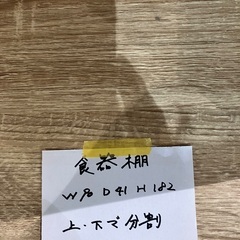 食器棚
W90 D41 H182
上・下で分割